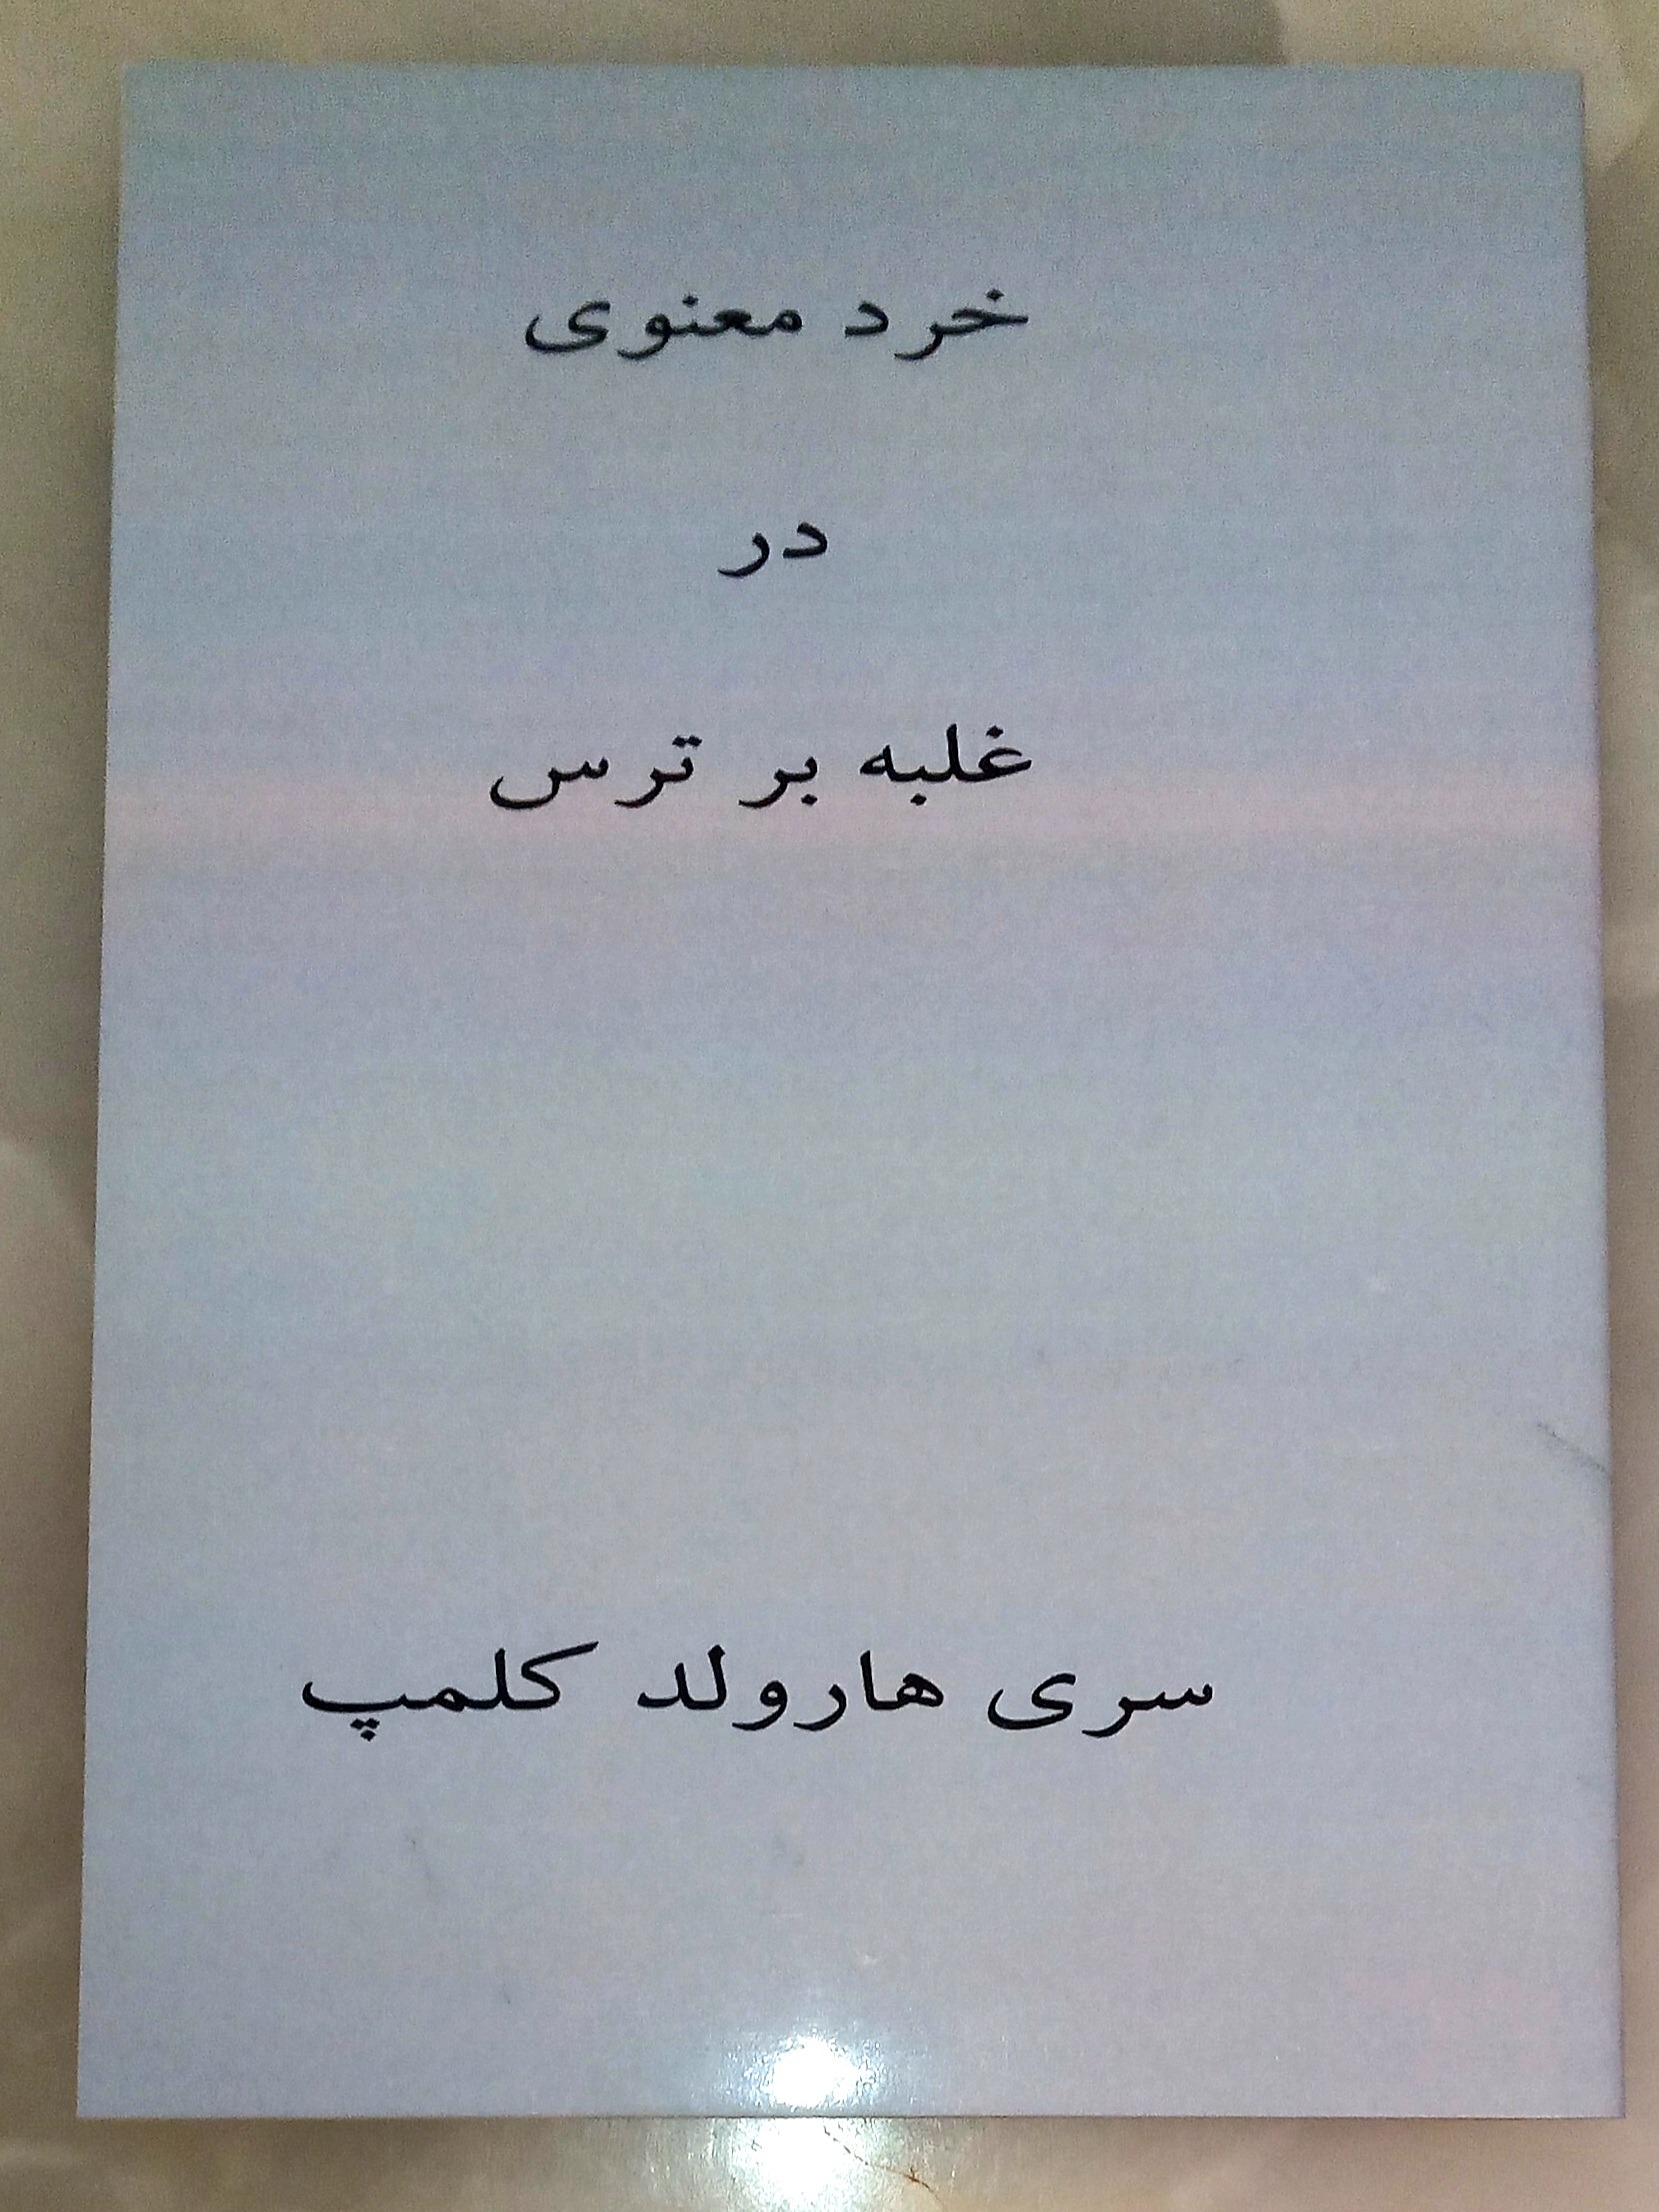 خرد معنوی
در
غلبه بر ترس
سری هارولد کلمپ